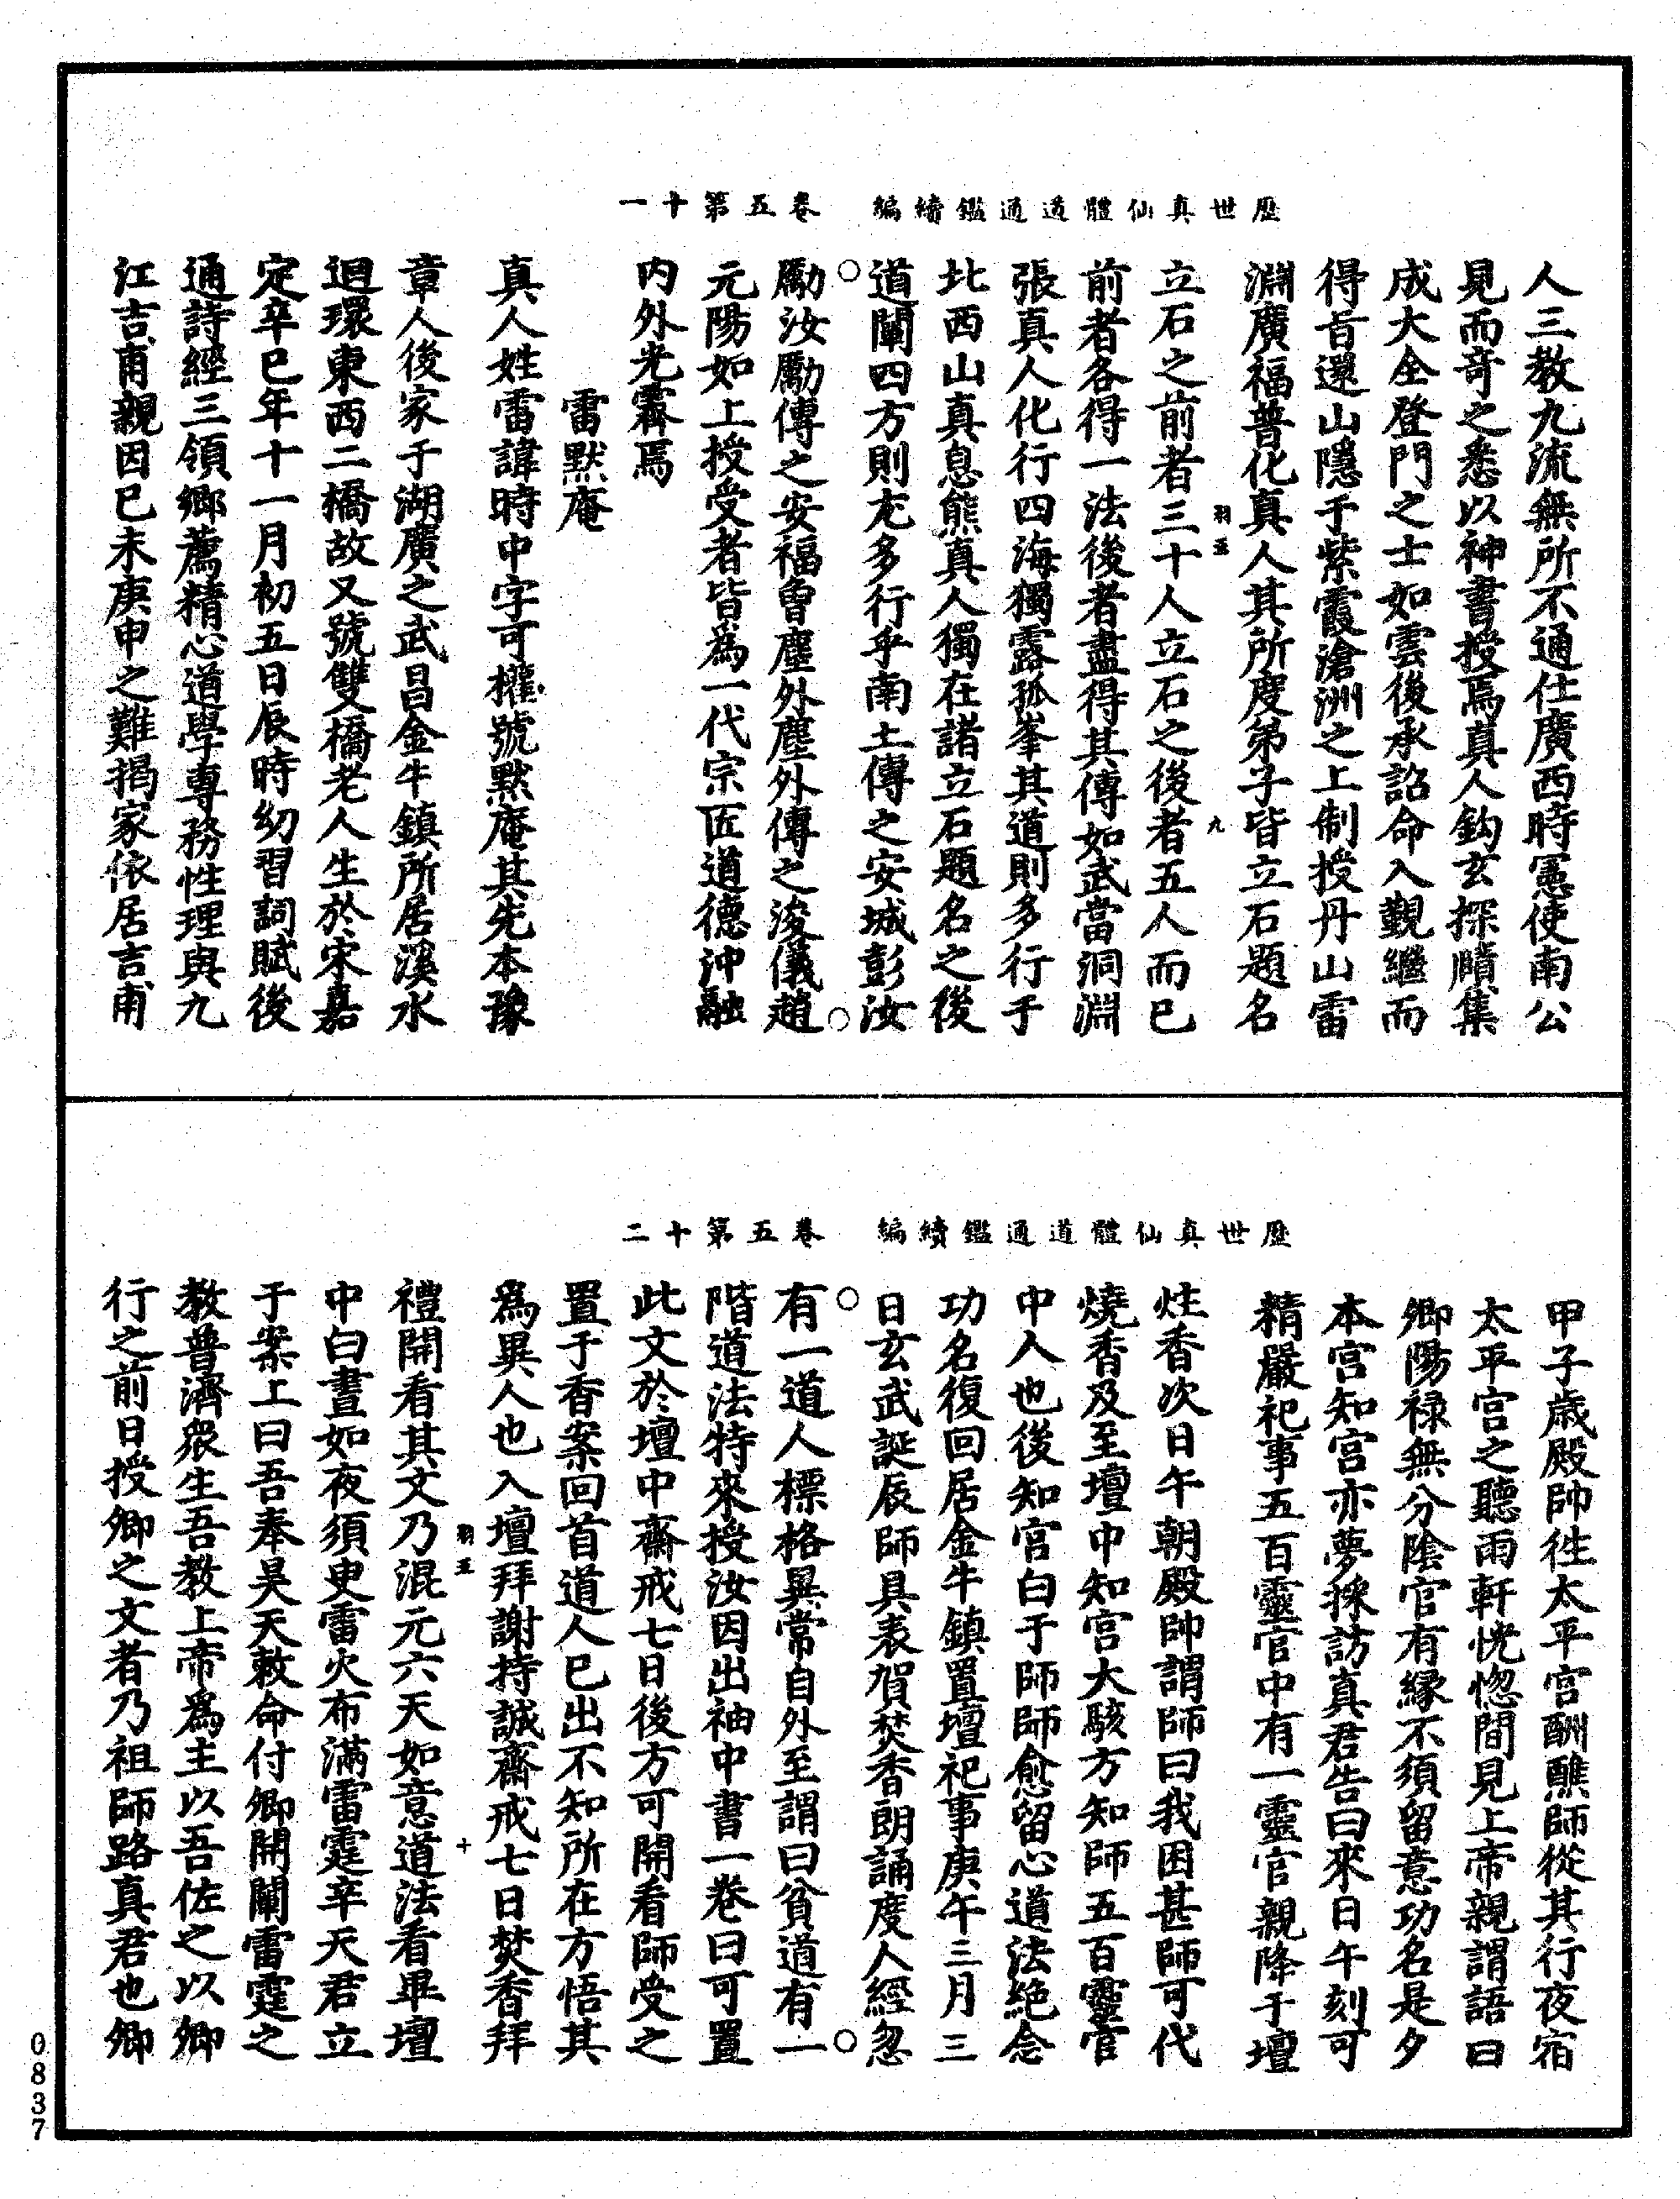 歷世真仙體道通鑑續編　卷五第十一
人三教九流無所不通仕廣西時憲使南公
見而奇之悉以神書授焉真人鈎玄探賾集
成大全登門之士如雲後承詔命入覲繼而
得旨還山隱于紫霞滄洲之上制授丹山雷
淵廣福普化真人其所度弟子皆立石題名
羽五　九
立石之前者三十人立石之後者五人而已
前者各得一法後者盡得其傳如武當洞淵
張真人化行四海獨露孤峯其道則多行于
北西山真息熊真人獨在諸立石題名之後
道闡四方則尤多行乎南土傳之安城彭汝
勵汝勵傳之安福曾塵外塵外傳之浚儀趙
元陽如上授受者皆為一代宗匠道德沖融
內外光霽焉
雷默庵
真人姓雷諱時中字可權號默庵其先本豫
章人後家于湖廣之武昌金牛鎮所居溪水
迴環東西二橋故又號雙橋老人生於宋嘉
定辛巳年十一月初五日辰時幼習詞賦後
通詩經三領鄉薦精心道學專務性理與九
江吉甫親因己未庚申之難揭家依居吉甫
歷世真仙體道通鑑續編　卷五第十二
甲子歲殿帥往太平宮酬醮師從其行夜宿
太平宮之聽雨軒恍惚間見上帝親謂語曰
卿陽祿無分陰官有緣不須留意功名是夕
本宮知宮亦夢採訪真君告曰來日午刻可
精嚴祀事五百靈官中有一靈官親降于壇
炷香次日午朝殿帥謂師曰我困甚師可代
燒香及至壇中知宮大駭方知師五百靈官
中人也後知宮白于師師愈留心道法絕念
功名復回居金牛鎮置壇祀事庚午三月三
日玄武誕辰師具表賀焚香朗誦度人經忽
有一道人標格異常自外至謂曰貧道有一
階道法特來授汝因出袖中書一卷曰可置
此文於壇中齋戒七日後方可開看師受之
置于香案回首道人已出不知所在方悟其
為異人也入壇拜謝持誠齋戒七日焚香拜
羽五　十
禮開看其文乃混元六天如意道法看畢壇
中白晝如夜須臾雷火布滿雷霆辛天君立
于案上曰吾奉昊天敕命付卿開闡雷霆之
教普濟眾生吾教上帝為主以吾佐之以卿
行之前日授卿之文者乃祖師路真君也卿
0837